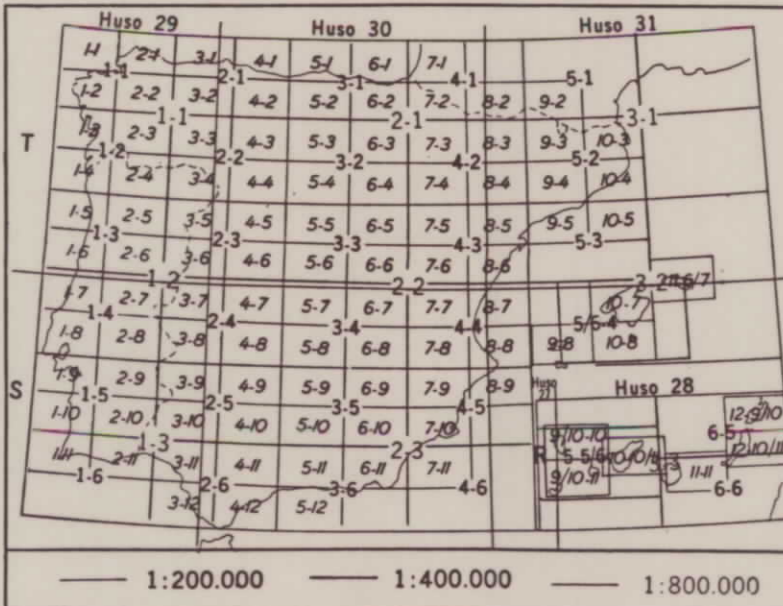 Huso 29 Huso 30 Huso 31
1-1 2-1 3-1 4-1 5-1 6-1 7-1
1-1 2-1 3-1 4-1 5-1
1-2 2-2 3-2 4-2 5-2 6-2 7-2 8-2 9-2
1-1 2-1 3-1
T
1-3 2-3 3-3 4-3 5-3 6-3 7-3 8-3 9-3 10-3
1-2 2-2 3-2 4-2 5-2
1-4 2-4 3-4 4-4 5-4 6-4 7-4 8-4 9-4 10-4
1-5 2-5 3-5 4-5 5-5 6-5 7-5 8-5 9-5 10-5
1-3 2-3 3-3 4-3 5-3
1-6 2-6 3-6 4-6 5-6 6-6 7-6 8-6
1-2 2-2 3-2
1-7 2-7 3-7 4-7 5-7 6-7 7-7 8-7 10-7
1-4 2-4 3-4 4-4 5/5-4
1-8 2-8 3-8 4-8 5-8 6-8 7-8 8-8 9-8 10-8
S
1-9 2-9 3-9 4-9 5-9 6-9 7-9 8-9
Huso 27 Huso 28
1-5 2-5 3-5 4-5
1-10 2-10 3-10 4-10 5-10 6-10 7-10 9/10-10 12-9/10
1-3 2-3 6-5
R 5-5/6 12-10/11
1-11 2-11 3-11 4-11 5-11 6-11 7-11 9/10-11 11-11
1-6 2-6 3-6 4-6 6-6
3-12 4-12 5-12
1:200.000 1:400.000 1:800.000